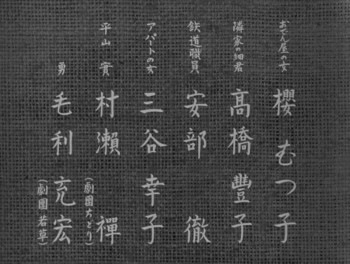 おでん屋の女
櫻むつ子
隣家の細君
髙橋豐子
鉄道職員
安部徹
アパートの女
三谷幸子
平山實
村瀬禪
(劇團ちどり)
勇
毛利充宏
(劇團若草)